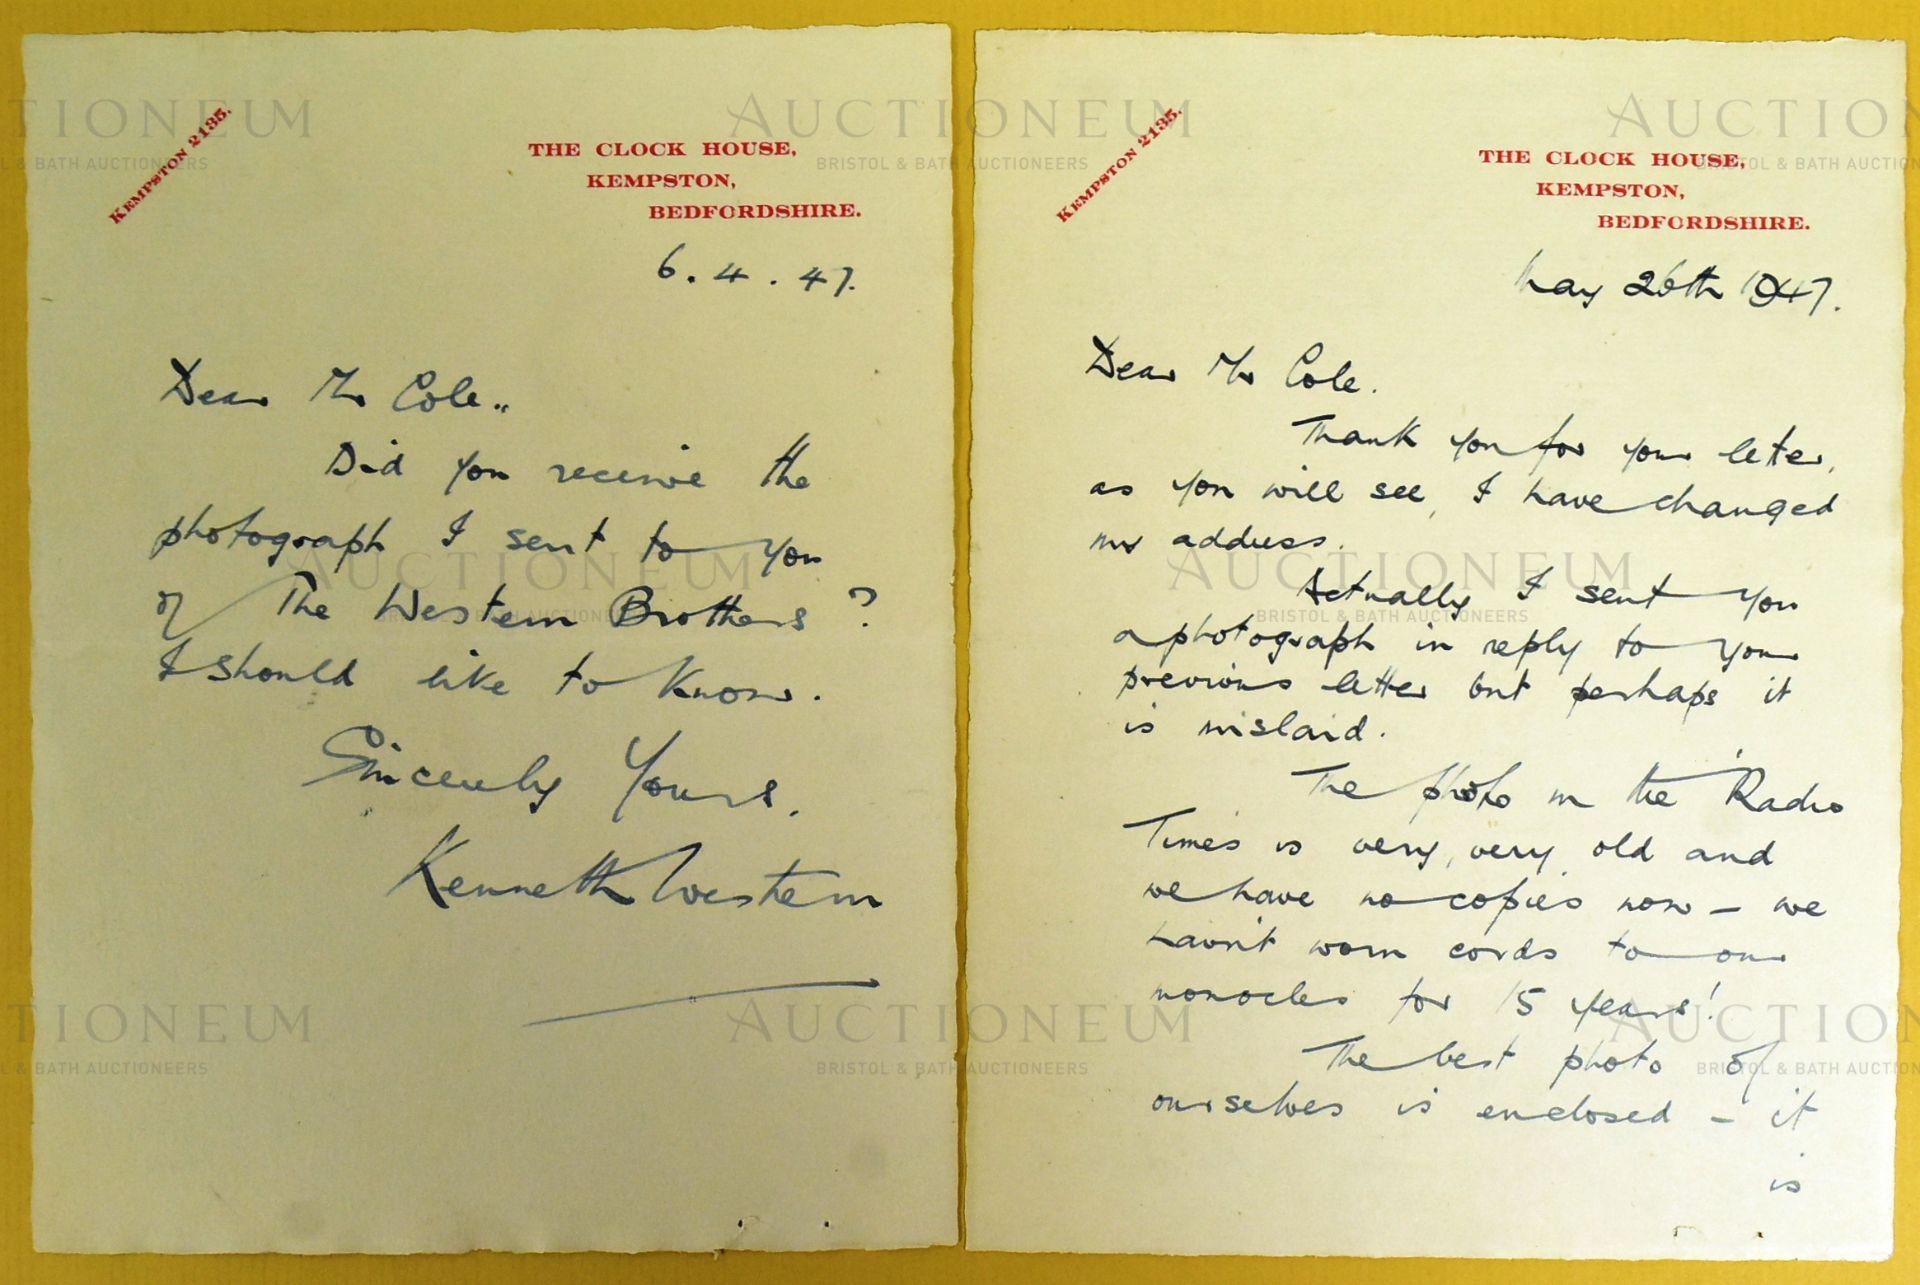 KEMPSTON 2135.
THE CLOCK HOUSE,
KEMPSTON,
BEDFORDSHIRE.
6.4.47.
Dear Mr Cole..
Did you receive the
photograph I sent to you
of The Western Brothers?
I should like to know.
Sincerely Yours.
Kenneth Western
KEMPSTON 2135.
THE CLOCK HOUSE,
KEMPSTON,
BEDFORDSHIRE.
May 26th 1947.
Dear Mr Cole.
Thank you for your letter,
as you will see, I have changed
my address.
Actually I sent you
a photograph in reply to your
previous letter but perhaps it
is mislaid.
The photo in the Radio
Times is very, very old and
we have no copies now – we
havn't worn cords to our
monocles for 15 years!
The best photo of
ourselves is enclosed – it
is
AUCTIONEUM
BRISTOL & BATH AUCTIONEERS